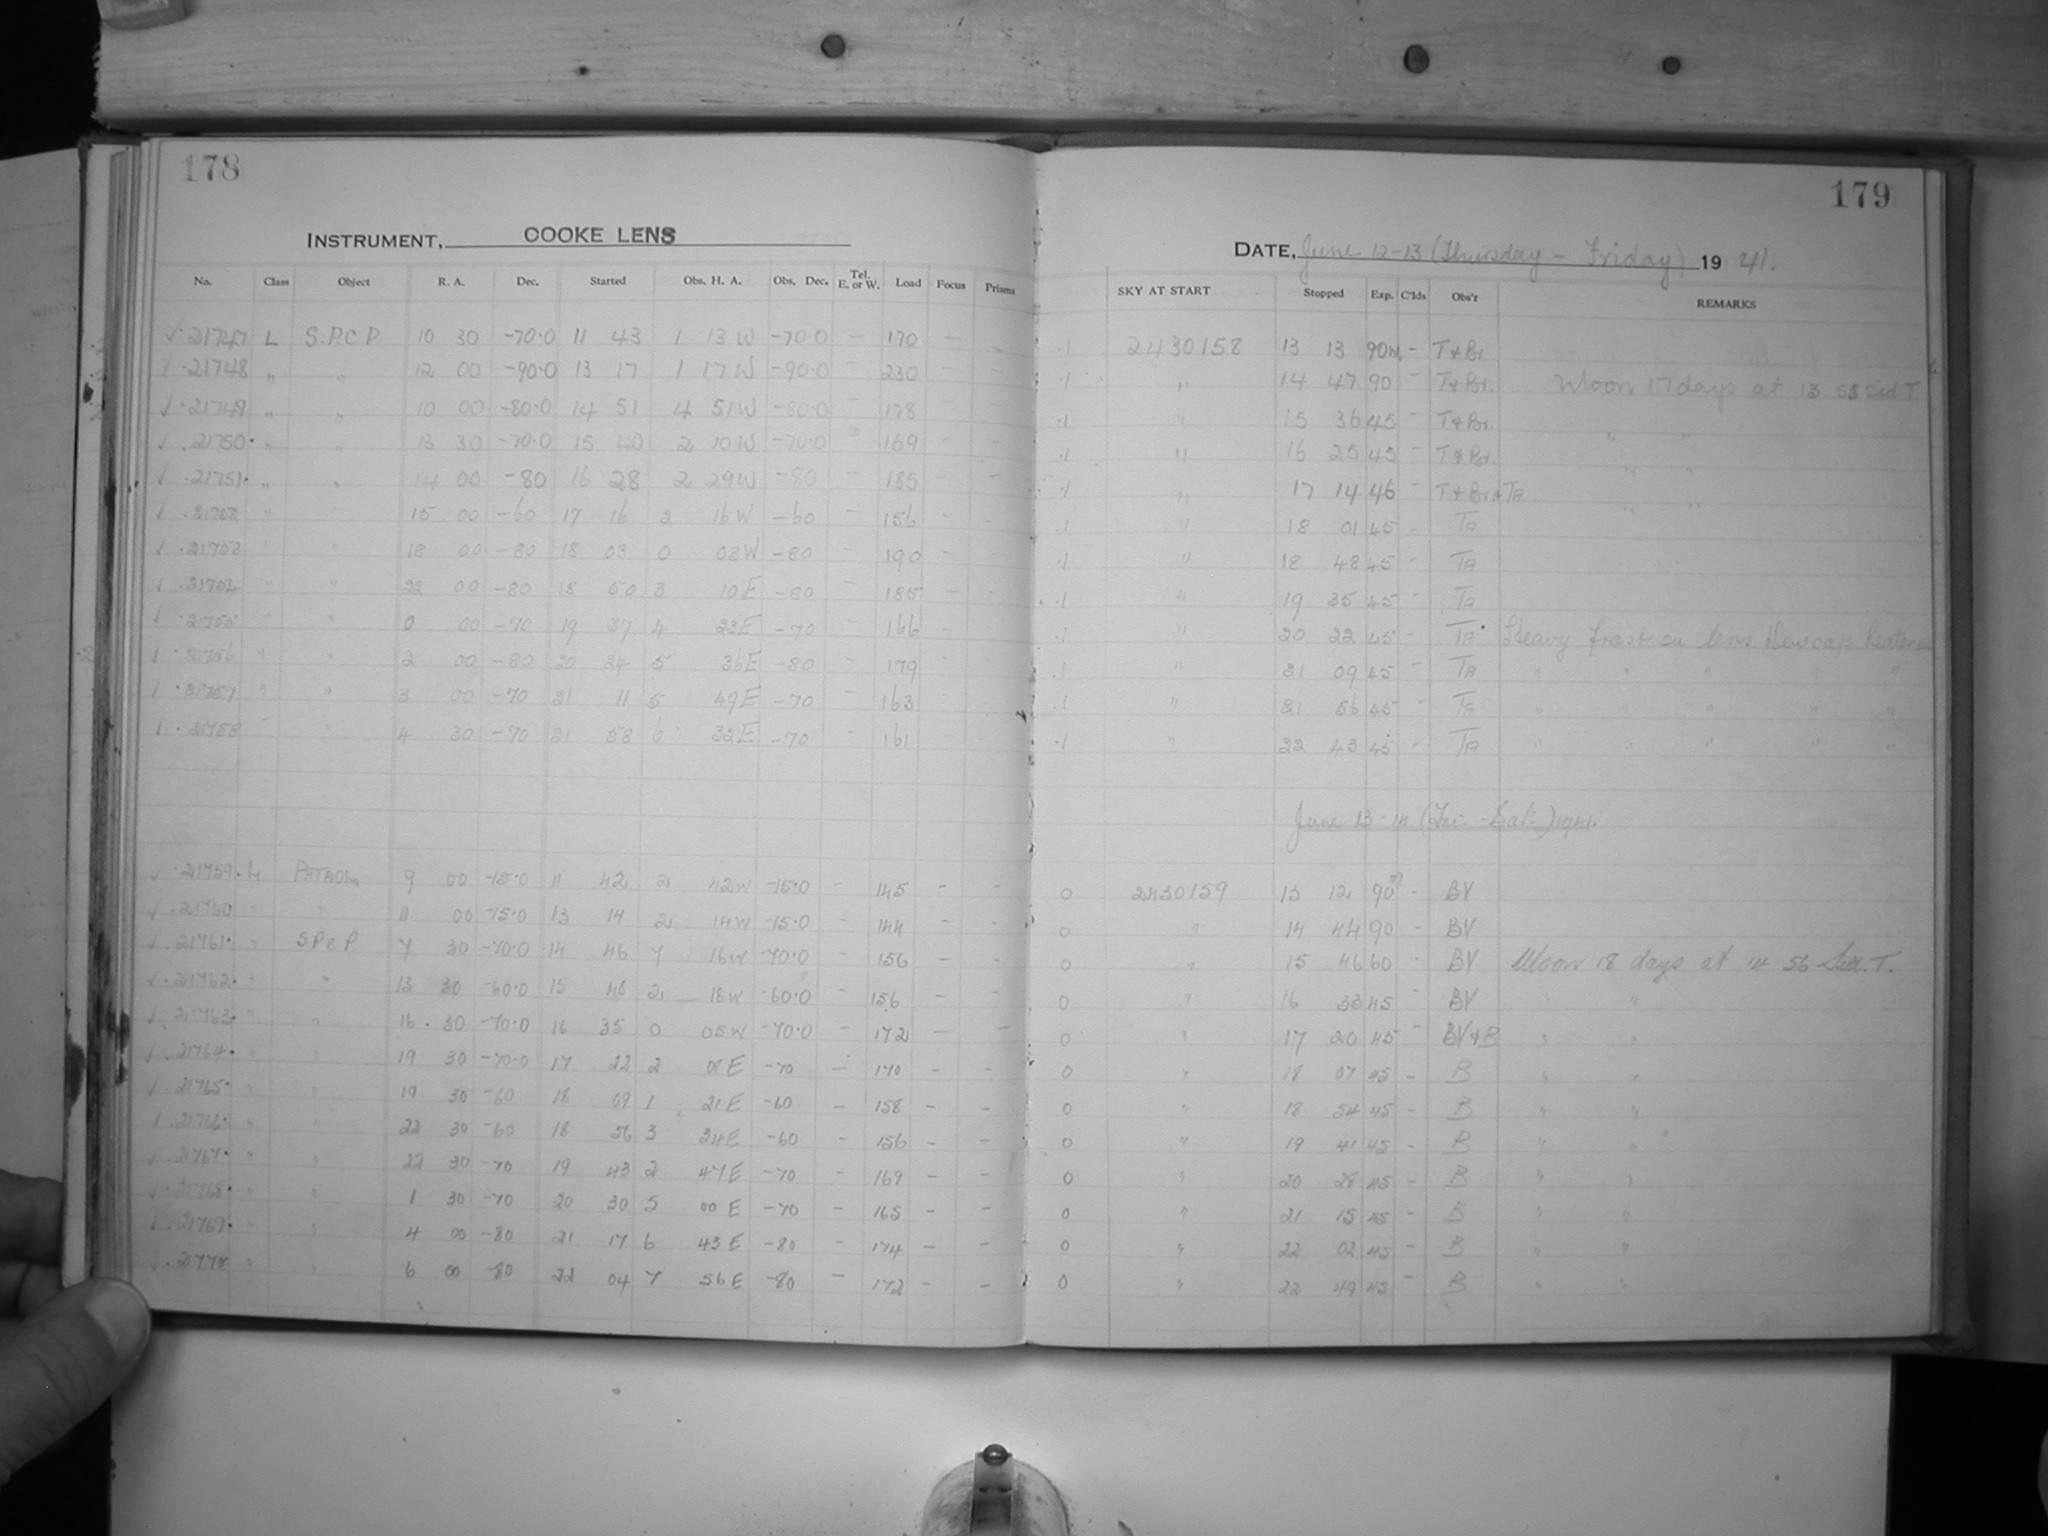 178
INSTRUMENT, COOKE LENS
No. Class Object R. A. Dec. Started Obs. H. A. Obs. Dec. Tel. E. or W. Load Focus Prisms
✓ .21747 L S.P.C.P. 10 30 -70.0 11 43 1 13 W -70.0 – 170 – –
✓ .21748 " " 12 00 -90.0 13 17 1 17 W -90.0 – 230 – –
✓ .21749 " " 10 00 -80.0 14 51 4 51 W -80.0 – 178 – –
✓ .21750. " " 13 30 -70.0 15 40 2 10 W -70.0 – 169 – –
✓ .21751. " " 14 00 -80 16 28 2 29 W -80 – 185 – –
✓ .21752 " " 15 00 -60 17 16 2 16 W -60 – 156 – –
✓ .21753 " " 18 00 -80 18 03 0 03 W -80 – 190 – –
✓ .21754 " " 22 00 -80 18 50 3 10 E -80 – 185 – –
✓ .21755 " " 0 00 -70 19 37 4 23 E -70 – 166 – –
✓ .21756 " " 2 00 -80 20 24 5 36 E -80 – 179 – –
✓ .21757 " " 3 00 -70 21 11 5 49 E -70 – 163 – –
✓ .21758 " " 4 30 -70 21 58 6 32 E -70 – 161 – –
✓ .21759. L 9 00 -15.0 11 42 2 42 W -15.0 – 145 – –
✓ .21760 " " 11 00 -15.0 13 14 2 14 W -15.0 – 144 – –
✓ .21761. " S P C P 7 30 -70.0 14 46 7 16 W -70.0 – 156 – –
✓ .21762. " " 13 30 -60.0 15 48 2 18 W -60.0 – 156 – –
✓ .21763. " " 16 30 -70.0 16 35 0 05 W -70.0 – 172 – –
✓ .21764. " " 19 30 -70.0 17 22 2 08 E -70 – 170 – –
✓ .21765. " " 19 30 -60 18 09 1 21 E -60 – 158 – –
✓ .21766. " " 22 30 -60 18 56 3 34 E -60 – 156 – –
✓ .21767. " " 22 30 -70 19 43 2 47 E -70 – 169 – –
✓ .21768. " " 1 30 -70 20 30 5 00 E -70 – 165 – –
✓ .21769. " " 4 00 -80 21 17 6 43 E -80 – 174 – –
✓ .21770 " " 6 00 -80 22 04 7 56 E -80 – 172 – –
179
DATE, June 12-13 (Thursday - Friday) 19 41.
SKY AT START Stopped Exp. C'lds Obs'r REMARKS
.1 2430158 13 13 90m – T & Br.
.1 " 14 47 90 – T & Br. Moon 17 days at 13 55 Sid. T.
.1 " 15 36 45 – T & Br. " "
.1 " 16 25 45 – T & Br. " "
.1 " 17 14 46 – T & Br. & TA " "
.1 " 18 01 45 – TA
.1 " 18 48 45 – TA
.1 " 19 35 45 – TA
.1 " 20 22 45 – TA Heavy frost on lens. Dewcap heater on
.1 " 21 09 45 – TA " " " " "
.1 " 21 56 45 – TA " " " " "
.1 " 22 43 45 – TA " " " " "
June 13-14 (Fri. - Sat.) 1941.
0 2430159 13 12 90m – BV
0 " 14 44 90 – BV
0 " 15 46 60 – BV Moon 18 days at 14 56 Sid. T.
0 " 16 33 45 – BV " "
0 " 17 20 45 – BV & B " "
0 " 18 07 45 – B " "
0 " 18 54 45 – B " "
0 " 19 41 45 – B " "
0 " 20 28 45 – B " "
0 " 21 15 45 – B " "
0 " 22 02 45 – B " "
0 " 22 49 45 – B " "